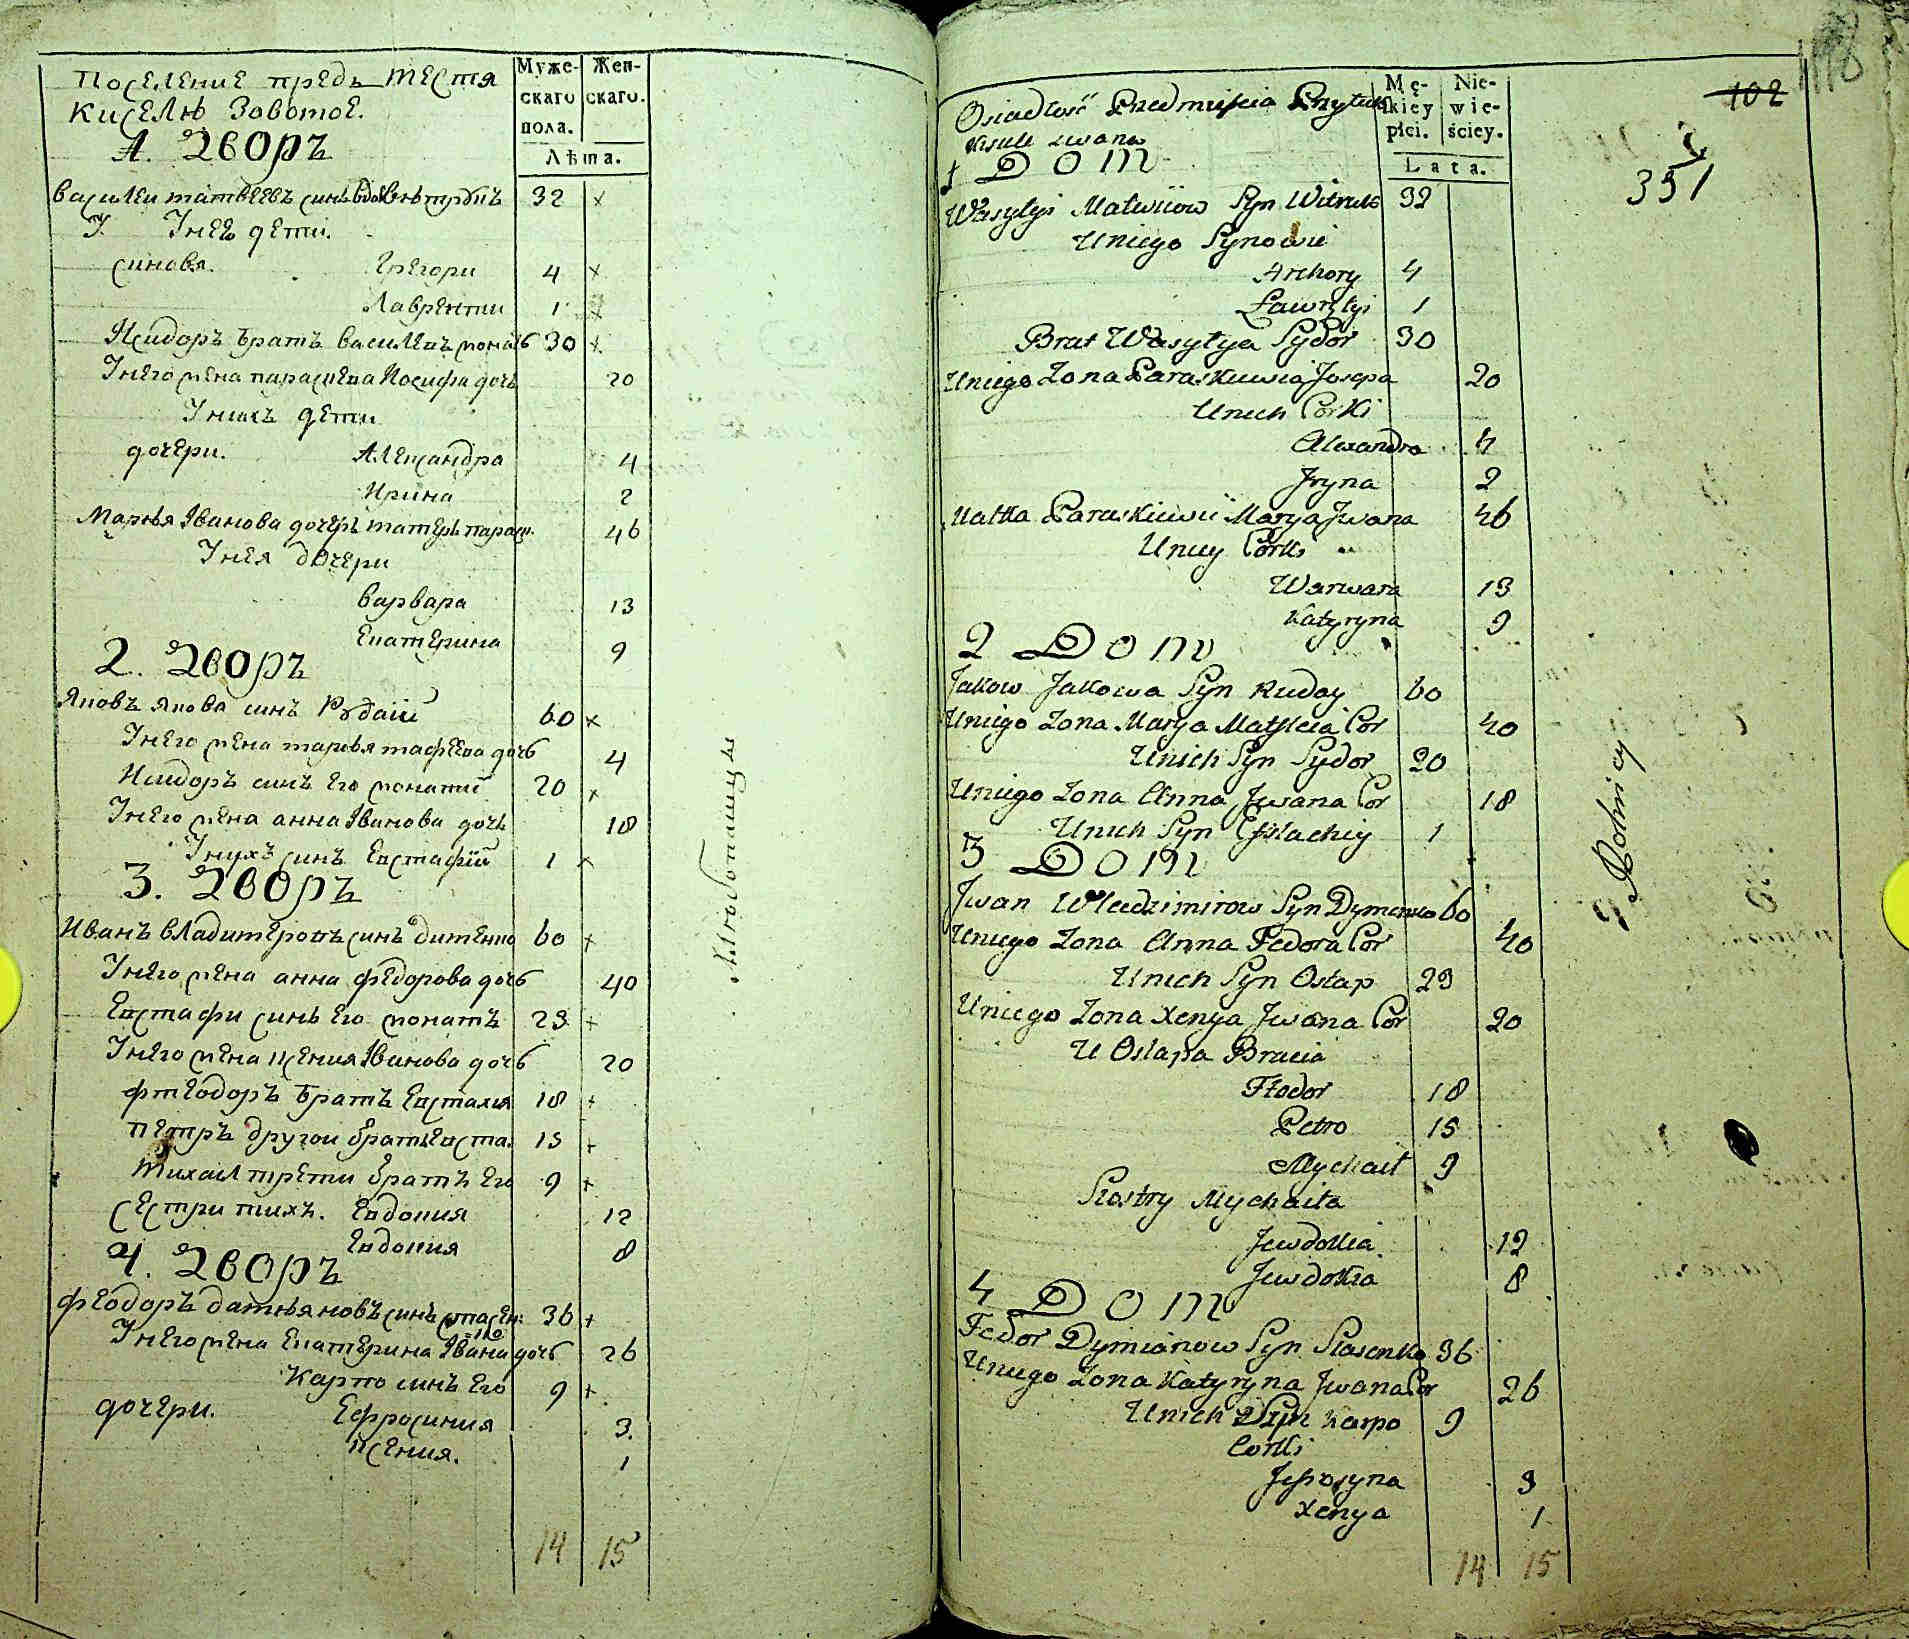 Поселение предъ местя
Киселѣ Зовомое.
Муже-
скаго
пола.
Жен-
скаго.
Лѣта.
1. Дворъ
Василеи матвеевъ синъ 32 ×
У Него дети.
синовя. Григори 4 ×
Лаврентии 1 ×
Исидоръ братъ василевъ 30 ×
У Него жена параскева Иосифа дочь 20
У нихъ дети
дочери. Александра 4
Ирина 2
Маря Иванова дочеръ матеръ парас. 46
У Нея дочери
варвара 13
Екатерина 9
2. Дворъ
Яковъ Якова синъ Рудаій 60 ×
У Него жена маря дочь 4
Исидоръ синъ Его женатий 20 ×
У Него жена анна Иванова дочь 18
У нихъ синъ Евстафій 1 ×
3. Дворъ
Иванъ владимеровъ синъ дименко 60 +
У Него жена анна федорова дочь 40
Евстафи синъ Его женатъ 23 +
У Него жена ксения Иванова дочь 20
фтеодоръ братъ Евстахия 18 +
петръ другои братъ Евста. 15 +
михаил трети братъ Его 9 +
сестри тихъ. Евдокия 12
Евдокия 8
4. Дворъ
феодоръ дамияновъ синъ стасен:
ко 36 +
У Него жена Екатерина Ивана дочь 26
Карпо синъ Его 9 +
дочери. Ефросиния 3.
ксения. 1
14 15
102
351
Osiadłość Przedmiescia
Kisiele zwana
Mę-
skiey
płci.
Nie-
wie-
ściey.
Lata.
1 Dom
Wasylyi Matwiiow Syn 32
Uniego Synowie
Arehory 4
Ławryłyi 1
Brat Wasylya Sydor 30
Uniego Zona Paraskiewia Josepa 20
Unich Corki
Alexandra 4
Jryna 2
Matka Paraskiewii Marya Jwana 46
Uniey Corki
Warwara 13
Katyryna 9
2 Dom
Jakow Jakowa Syn Rudoy 60
Uniego Zona Marya Cor 40
Unich Syn Sydor 20
Uniego Zona Anna Jwana Cor 18
Unich Syn 1
3 Dom
Jwan Wladzimirow Syn Dymenko 60
Uniego Zona Anna Fedora Cor 40
Unich Syn Ostap 23
Uniego Zona Xenya Jwana Cor 20
U Ostapa Bracia
Fteodor 18
Petro 15
Mychaił 9
Siostry Mychaiła
Jewdokia 12
Jewdokia 8
4 Dom
Fedor Dymianow Syn Stasenko 36
Uniego Zona Katyryna Jwana Cor 26
Unich Syn Karpo 9
Corki
Jefrosyna 3
Xenya 1
14 15
Rolnicy